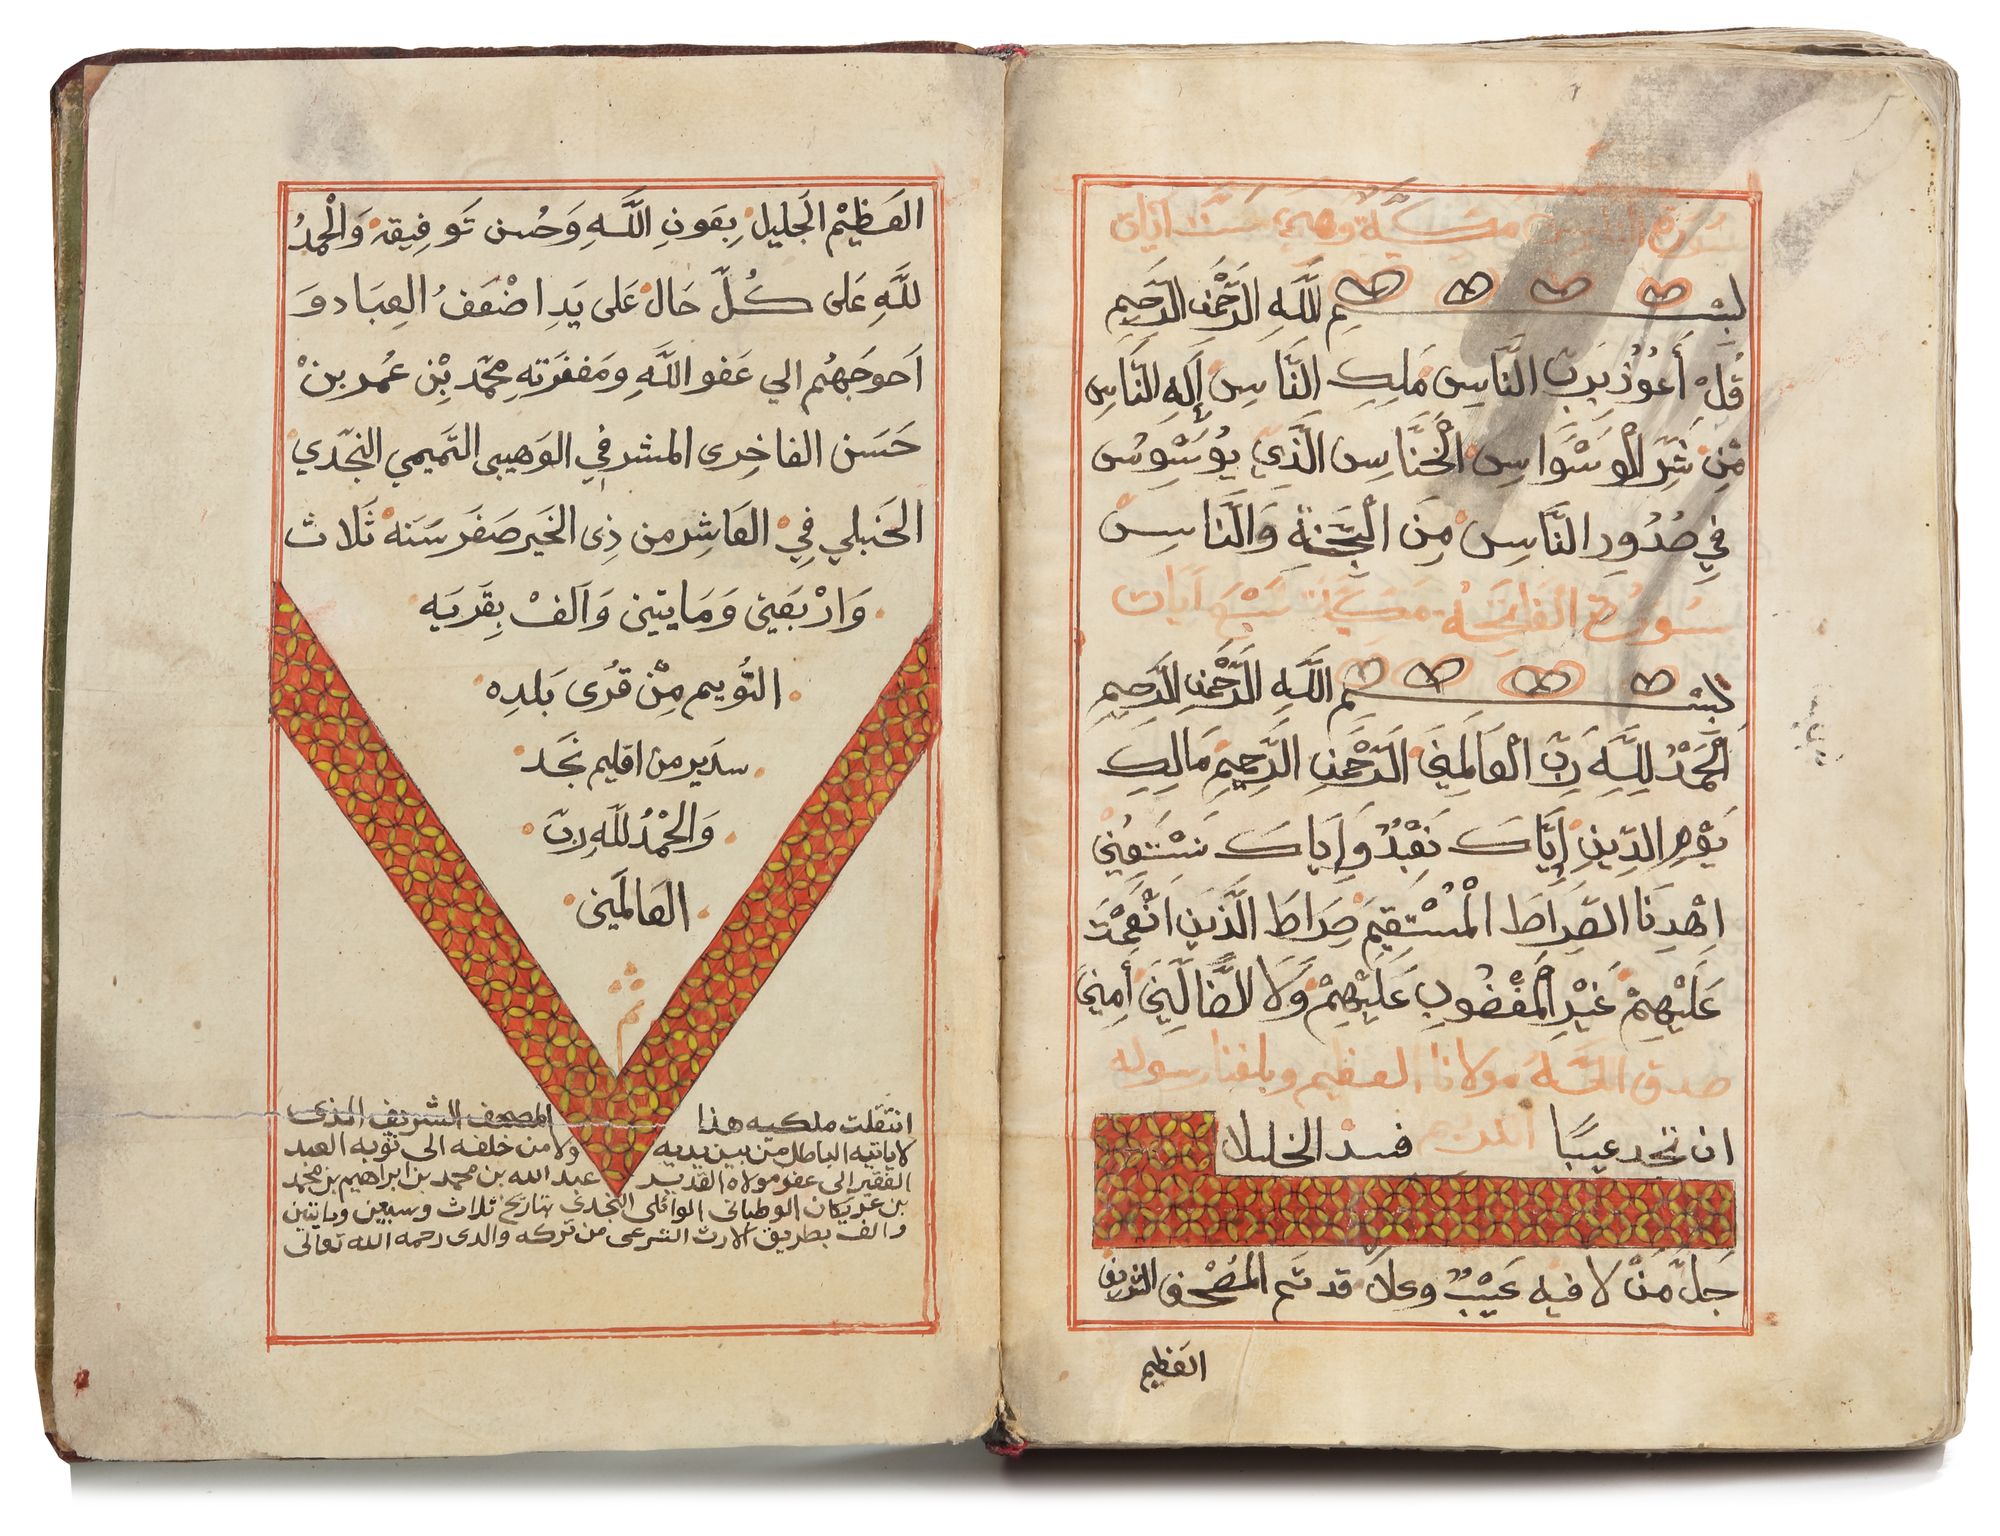 سورة الناس مكية وهي ست آيات
بِسْمِ اللَّهِ الرَّحْمٰنِ الرَّحِيمِ
قُلْ أَعُوْذُ بِرَبِّ النَّاسِ مَلِكِ النَّاسِ إِلَهِ النَّاسِ
مِنْ شَرِّ الْوَسْوَاسِ الْخَنَّاسِ الَّذِي يُوَسْوِسُ
فِي صُدُورِ النَّاسِ مِنَ الْجِنَّةِ وَالنَّاسِ
سُورَة الفاتِحَة مَكِيَّة سَبْع آيَات
بِسْمِ اللَّهِ الرَّحْمٰنِ الرَّحِيمِ
الْحَمْدُ لِلَّهِ رَبِّ الْعَالَمِينَ الرَّحْمٰنِ الرَّحِيمِ مَالِكِ
يَوْمِ الدِّينِ إِيَّاكَ نَعْبُدُ وَإِيَّاكَ نَسْتَعِيْنُ
اِهْدِنَا الصِّرَاطَ الْمُسْتَقِيمَ صِرَاطَ الَّذِينَ أَنْعَمْتَ
عَلَيْهِمْ غَيْرِ الْمَغْضُوبِ عَلَيْهِمْ وَلَا الضَّالِّينَ أَمِينَ
صدق الله مولانا العظيم وبلغنا رسوله
ان تجد عيبًا فسد الخللا
جَلَّ مَنْ لا فيه عَيْبٌ وعلا قد تم المُصْحَف الشريف
العظيم
العَظِيْم الجَليل بِعَونِ اللَّهِ وَحُسن تَوفِيقه وَالْحَمْدُ
للَّهِ عَلى كُلِّ حَال عَلى يَدِ اضْعَفُ العِبَاد وَ
اَحوَجَهُم الي عَفو اللَّهِ وَمَغفَرَته مِحمّد بْنِ عُمر بِنْ
حَسَن الفاخِرى المشرفي الوَهيبى التَّميمي النَّجدي
الحَنبلي فِيْ العَاشِر من ذِى الخَير صَفَر سَنَة ثَلاث
وَارْبَعَين وَمَايتين وَالفْ بِقَريَه
التُّويم مِنْ قُرى بَلدِه
سدَير من اقليم نجَد
وَالحَمْدُ للَّهِ رَبّ
العَالَمين
تم
انتقلت ملكيه هذا المصحف الشريف الذى
لاياتيه الباطل من بين يديه ولا من خلفه الى نوبه العبد
الفقير الى عفو مولاه القدير عبد الله بن محمد بن ابراهيم بن محمد
بن عريكان الوطبانى الوائلى النجدى بتاريخ ثلاث وسبعين ومايتين
والف بطريق الارث الشرعى من تركه والدى رحمه الله تعالى